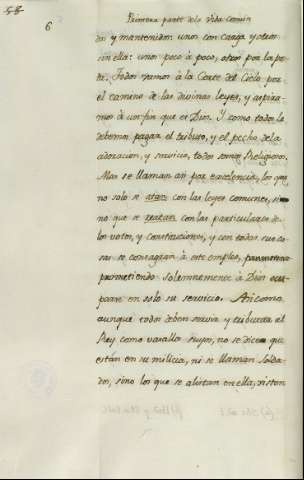 6
Primera parte de la Vida comun
dos y mantenidos: unos con carga y otros
sin ella: unos poco à poco, otros por la po
ta. Todos vamos à la Corte del Cielo por
el camino de las divinas leyes, y aspira
mos à un fin que es Dios. Y como todos le
debemos pagar el tributo, y el pecho de la
adoracion, y servicio, todos somos Religiosos.
Mas se llaman asi por excelencia, los que
no solo se atan con las leyes comunes, sino
no que se reatan con las particulares de
los votos, y constituciones, y con todas sus co
sas se consagran à este empleo,
prometiendo solemnemente à Dios ocu
parse en solo su servicio. Asi como
aunque todos deben servir y tributar al
Rey como vasallos suyos, no se dice que
están en su milicia, ni se llaman Solda
dos, sino los que se alistan en ella, visten